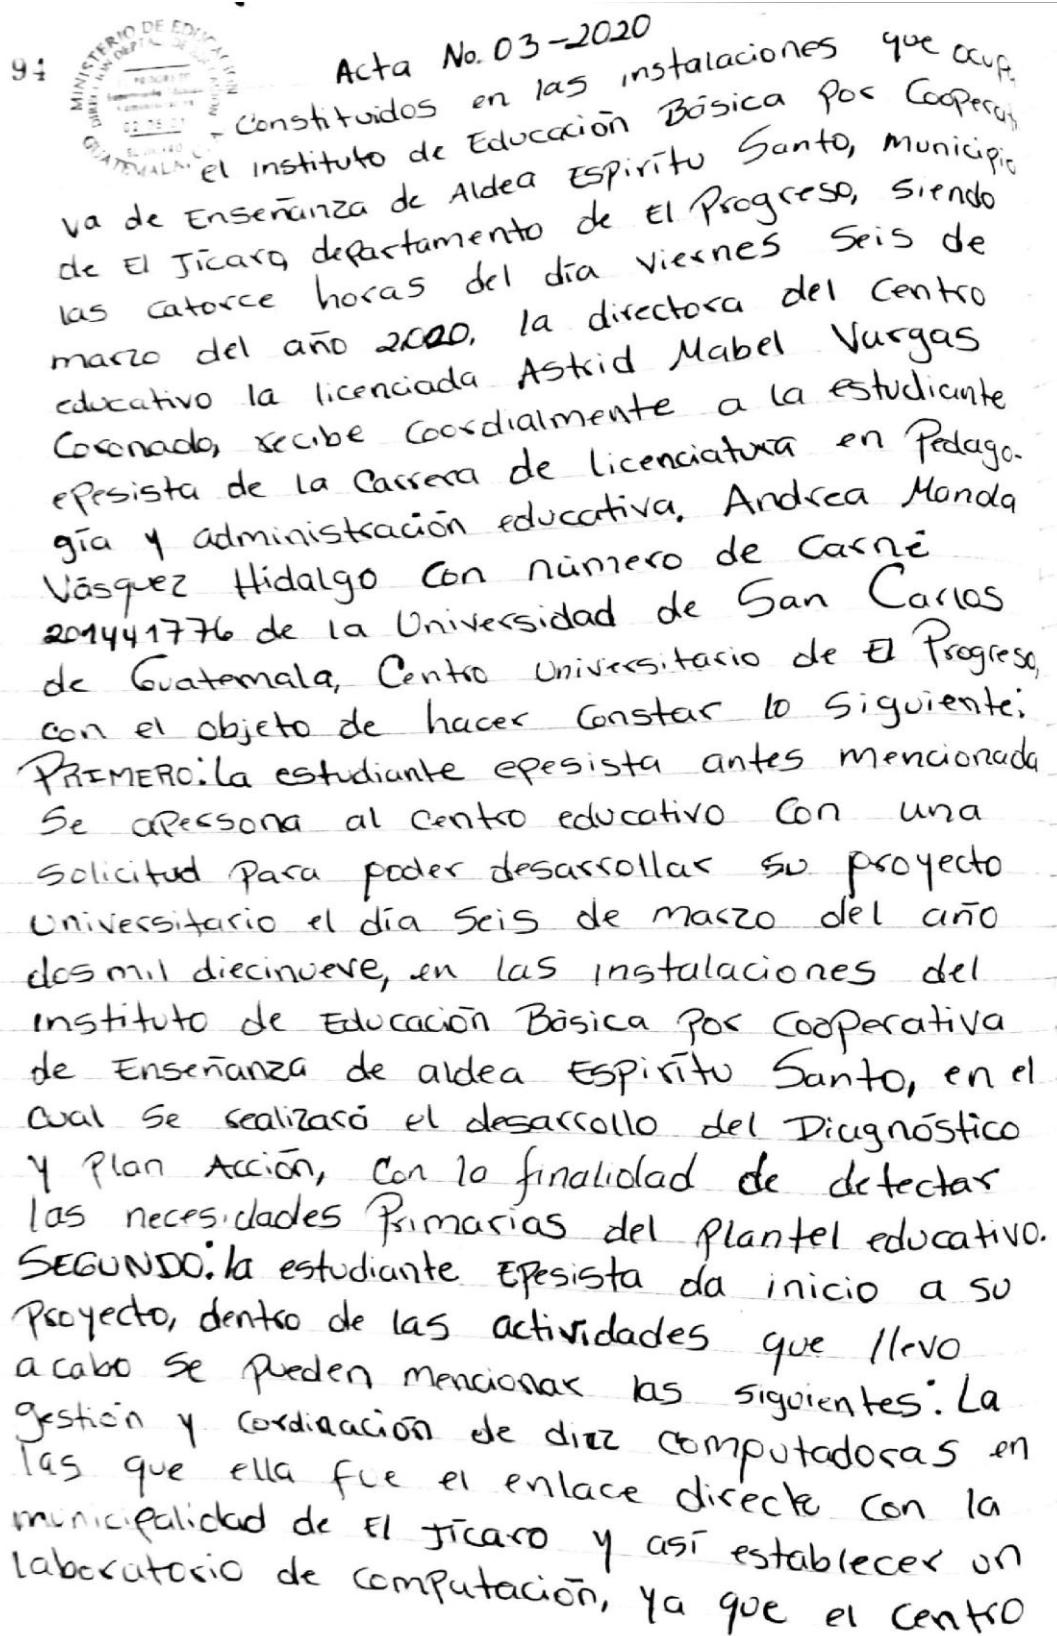 94
MINISTERIO DE EDUCACION
GUATEMALA, C. A.
Acta No. 03-2020
Constituidos en las instalaciones que ocupa
el instituto de Educación Básica Por Cooperati
va de Enseñanza de Aldea Espirítu Santo, municipio
de El Jícaro, departamento de El Progreso, siendo
las catorce horas del día viernes seis de
marzo del año 2020, la directora del centro
educativo la licenciada Astrid Mabel Vargas
Coronado, recibe coordialmente a la estudiante
epesista de la Carrera de licenciatura en Pedago-
gía y administración educativa. Andrea Monda
Vásquez Hidalgo con número de Carné
201441776 de la Universidad de San Carlos
de Guatemala, Centro Universitario de El Progreso,
con el objeto de hacer constar lo siguiente:
PRIMERO: la estudiante epesista antes mencionada
se apersona al centro educativo con una
solicitud para poder desarrollar su proyecto
universitario el día seis de marzo del año
dos mil diecinueve, en las instalaciones del
instituto de Educación Básica Por Cooperativa
de Enseñanza de aldea Espirítu Santo, en el
cual se realizaró el desarrollo del Diagnóstico
y Plan Acción, con la finalidad de detectar
las necesidades Primarias del plantel educativo.
SEGUNDO: la estudiante Epesista da inicio a su
proyecto, dentro de las actividades que llevo
a cabo se pueden mencionar las siguientes: La
gestión y cordinación de diez computadoras en
las que ella fue el enlace directo con la
municipalidad de El Jícaro y así establecer un
laboratorio de computación, ya que el centro